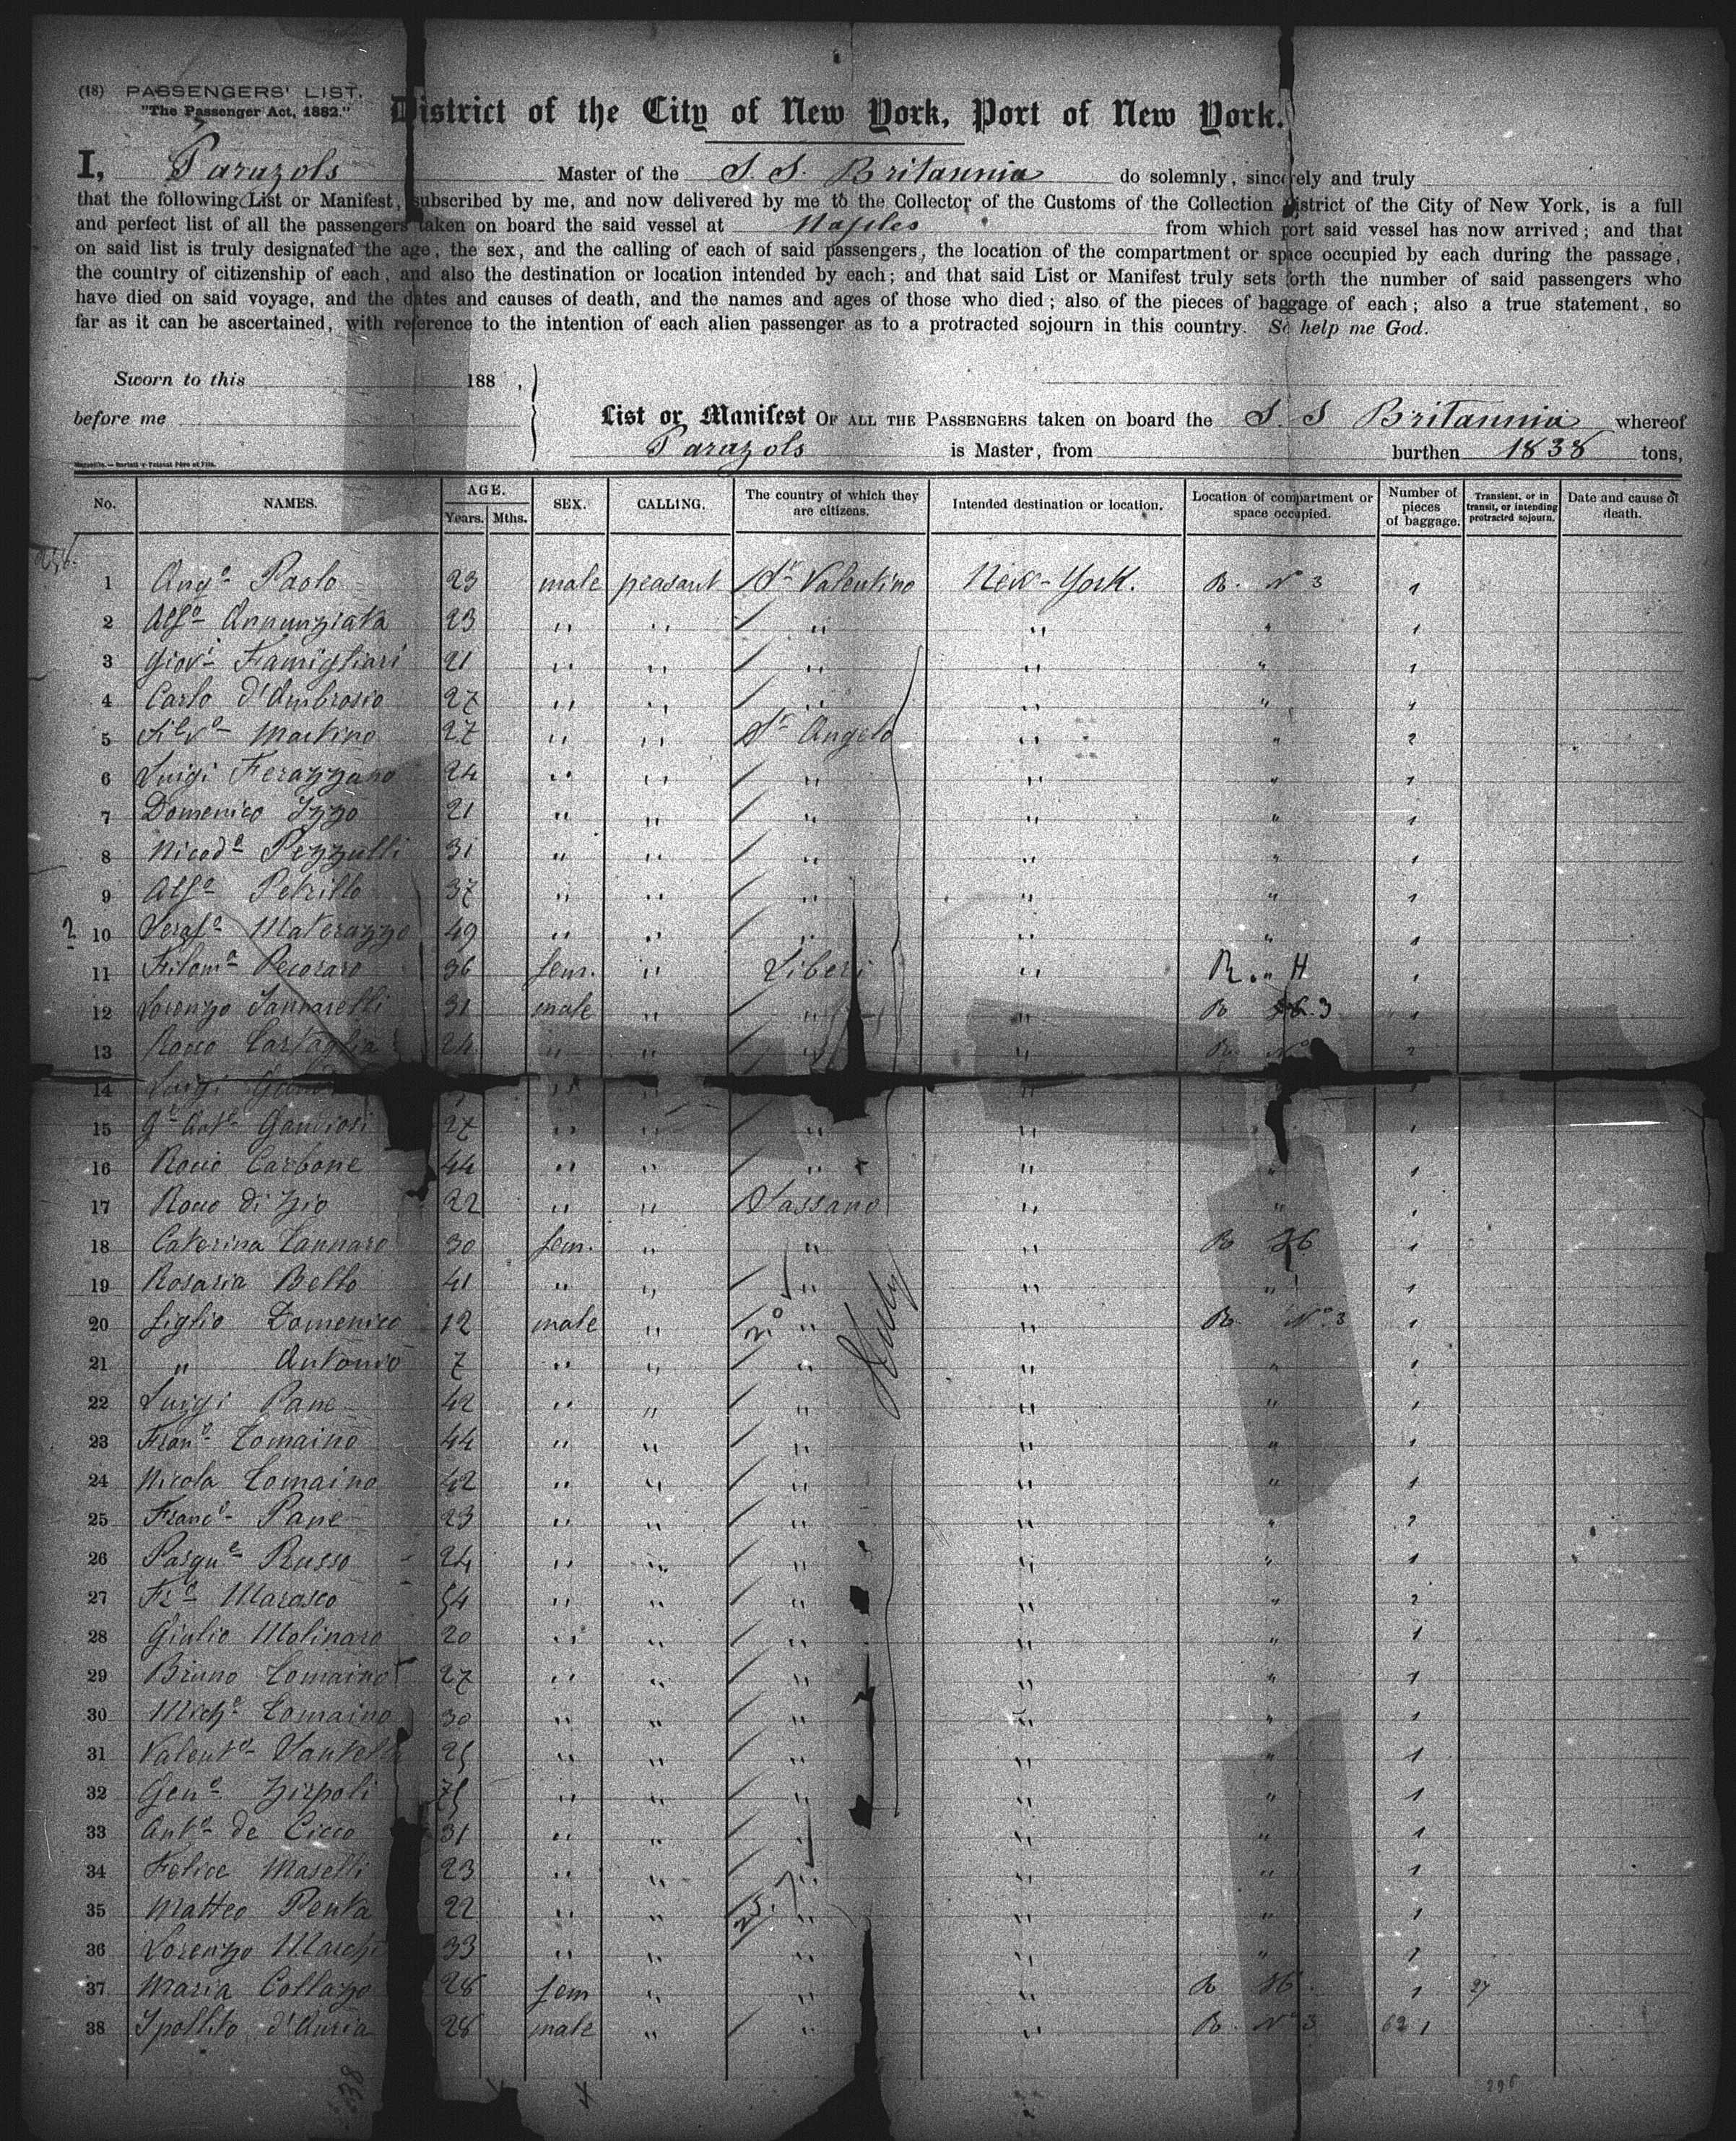 (18) PASSENGERS' LIST.
"The Passenger Act, 1882."
District of the City of New York, Port of New York.
I, Parazols Master of the S. S. Britannia do solemnly, sincerely and truly
that the following List or Manifest, subscribed by me, and now delivered by me to the Collector of the Customs of the Collection District of the City of New York, is a full
and perfect list of all the passengers taken on board the said vessel at Naples from which port said vessel has now arrived; and that
on said list is truly designated the age, the sex, and the calling of each of said passengers, the location of the compartment or space occupied by each during the passage,
the country of citizenship of each, and also the destination or location intended by each; and that said List or Manifest truly sets forth the number of said passengers who
have died on said voyage, and the dates and causes of death, and the names and ages of those who died; also of the pieces of baggage of each; also a true statement, so
far as it can be ascertained, with reference to the intention of each alien passenger as to a protracted sojourn in this country. So help me God.
Sworn to this 188 ,
before me
List or Manifest OF ALL THE PASSENGERS taken on board the S. S Britannia whereof
Parazols is Master, from burthen 1838 tons,
No. NAMES. AGE. Years. Mths. SEX. CALLING. The country of which they are citizens. Intended destination or location. Location of compartment or space occupied. Number of pieces of baggage. Transient, or in transit, or intending protracted sojourn. Date and cause of death.
1 Ango Paolo 23 male peasant Sn Valentino New-York. R. No 3 1
2 Alfo Annunziata 23 " " " " " 1
3 Giovi Famigliari 21 " " " " " 1
4 Carlo d'Ambrosio 27 " " " " " 1
5 Silvo Martino 27 " " Sn Angelo " " 2
6 Luigi Ferazzano 24 " " " " " 1
7 Domenico Izzo 21 " " " " " 1
8 Nicodo Pezzulli 31 " " " " " 1
9 Alfo Petrillo 37 " " " " " 1
? 10 Serafo Materazzo 49 " " " " " 1
11 Filoma Pecoraro 36 fem. " Liberi " R. " H 1
12 Lorenzo Iannarelli 31 male " " " R 3 1
13 Rocco Cartaglia 24 " " " " R. No 2
14 Luigi " " " 1
15 Gio Anto Gaudiosi 27 " " " " 1
16 Rocco Carbone 44 " " " " " 1
17 Rocco di Zio 22 " " Sassano " " 1
18 Caterina Tannaro 30 fem. " " " R H6 1
19 Rosaria Bello 41 " " " " " 1
20 figlio Domenico 12 male " 20 " " R. No 3 1
21 " Antonio 7 " " " " " 1
Italy
22 Luigi Pane 42 " " " " " 1
23 Frano Lomaino 44 " " " " " 1
24 Nicola Lomaino 42 " " " " " 1
25 Franco Pane 23 " " " " " 2
26 Pasque Russo 24 " " " " " 1
27 Fro Marasco 54 " " " " " 2
28 Giulio Molinaro 20 " " " " " 1
29 Bruno Lomaino 27 " " " " " 1
30 Miche Lomaino 30 " " " " " 1
31 Valento Santella 25 " " " " " 1
32 Geno Zirpoli 75 " " " " " 1
33 Anto de Cicco 31 " " " " " 1
34 Felice Maselli 23 " " " " " 1
35 Matteo Penta 22 " " " " " 1
36 Lorenzo Marchi 33 " " " " " 1
37 Maria Collazo 28 fem " " " R H6. 1 27
38 Ipollito d'Auria 28 male " " " R. No 3 62 1
296